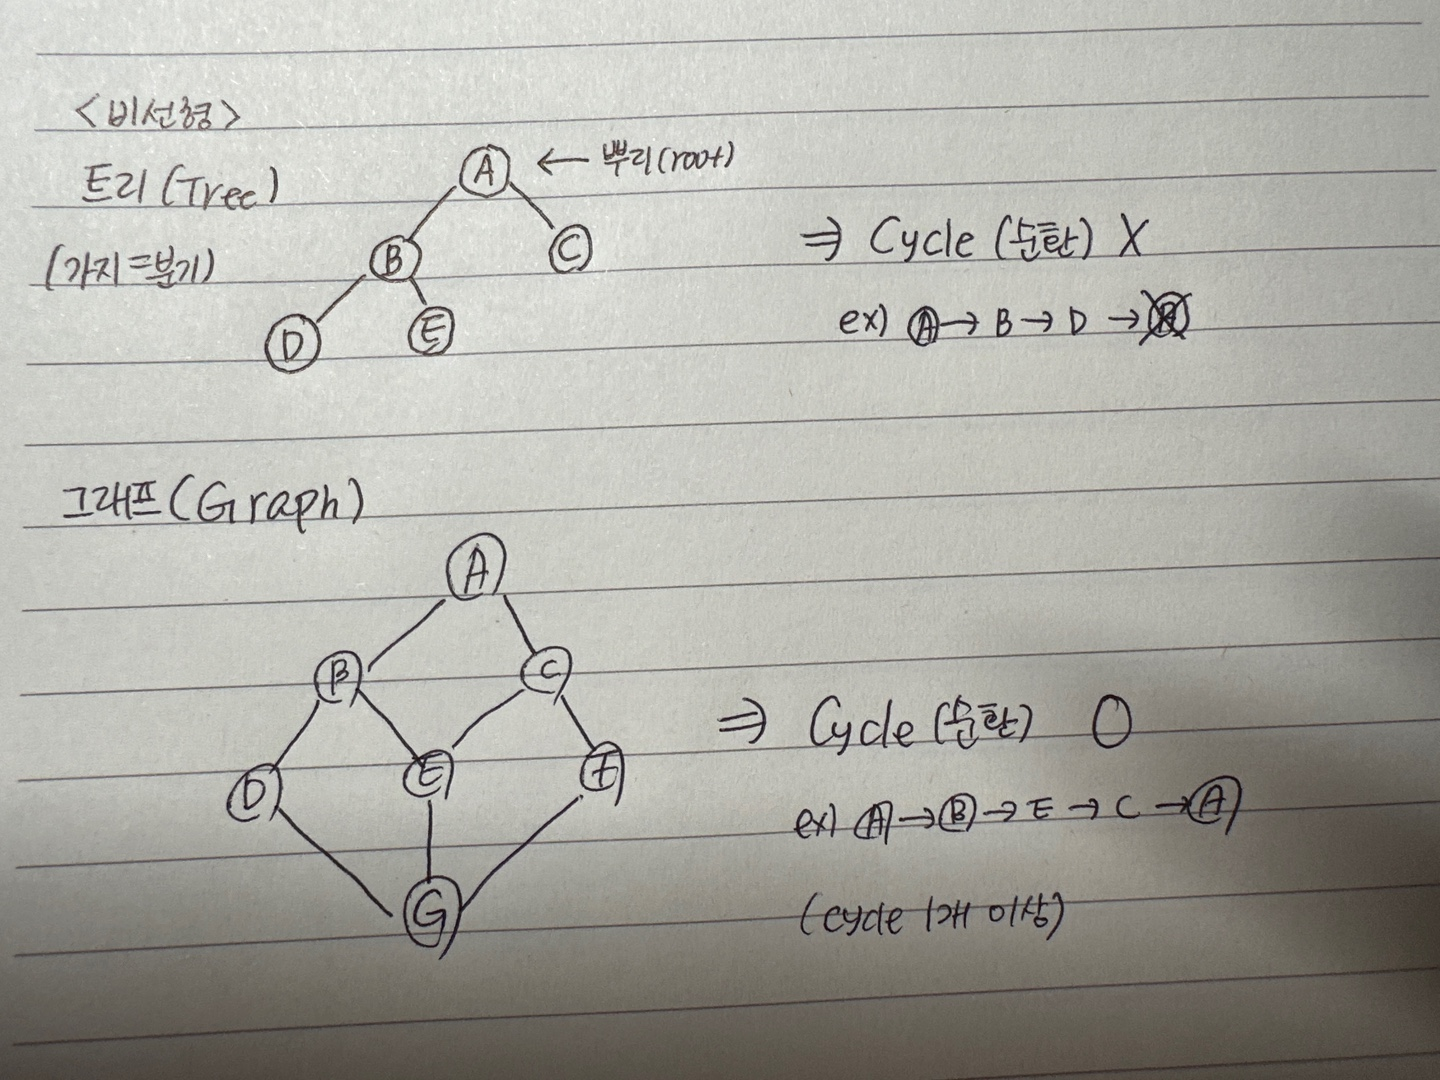 <비선형>
트리(Tree)
(가지=분기)
A ← 뿌리(root)
B C
D E
⇒ Cycle (순환) X
ex) A → B → D →
그래프(Graph)
A
B C
D E F
G
⇒ Cycle (순환) O
ex) A → B → E → C → A
(cycle 1개 이상)